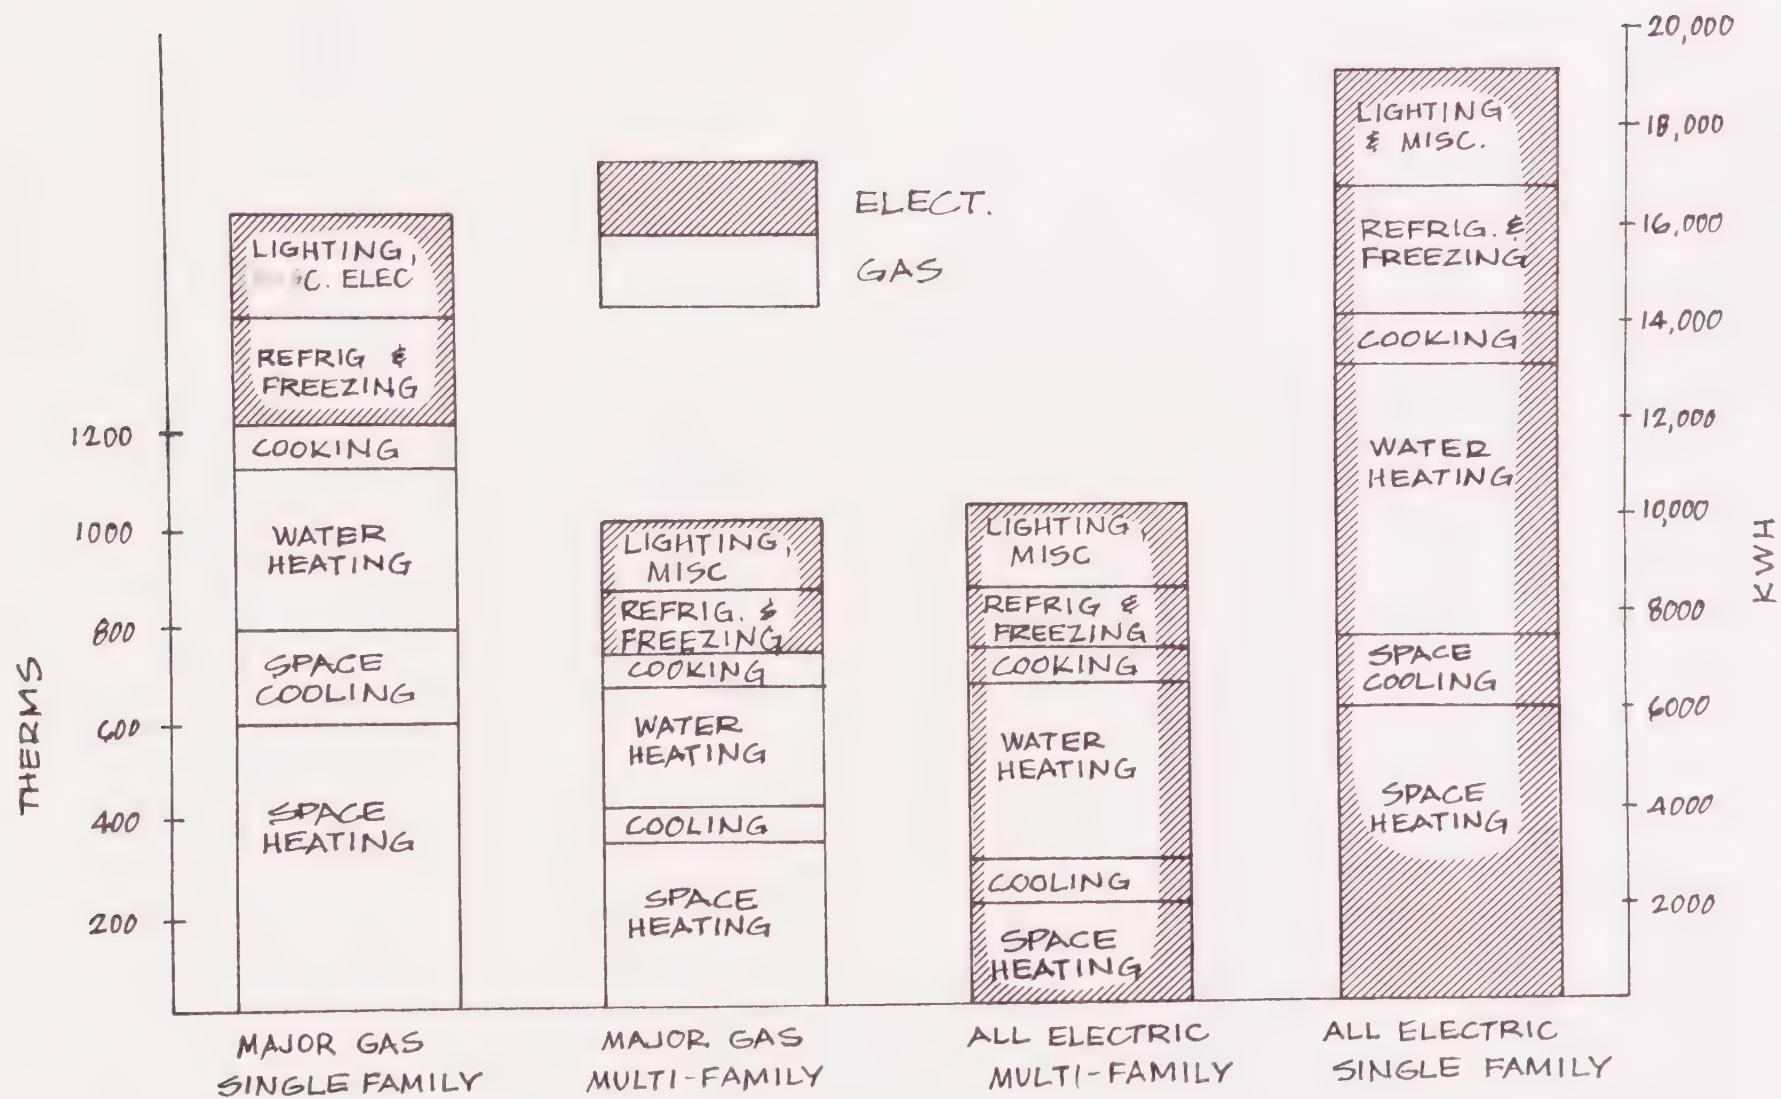 THERMS
1200
1000
800
600
400
200
LIGHTING,
C. ELEC
REFRIG &
FREEZING
COOKING
WATER
HEATING
SPACE
COOLING
SPACE
HEATING
MAJOR GAS
SINGLE FAMILY
ELECT.
GAS
LIGHTING,
MISC
REFRIG. &
FREEZING
COOKING
WATER
HEATING
COOLING
SPACE
HEATING
MAJOR GAS
MULTI-FAMILY
LIGHTING,
MISC
REFRIG &
FREEZING
COOKING
WATER
HEATING
COOLING
SPACE
HEATING
ALL ELECTRIC
MULTI-FAMILY
LIGHTING
& MISC.
REFRIG. &
FREEZING
COOKING
WATER
HEATING
SPACE
COOLING
SPACE
HEATING
ALL ELECTRIC
SINGLE FAMILY
20,000
18,000
16,000
14,000
12,000
10,000
8000
6000
4000
2000
KWH